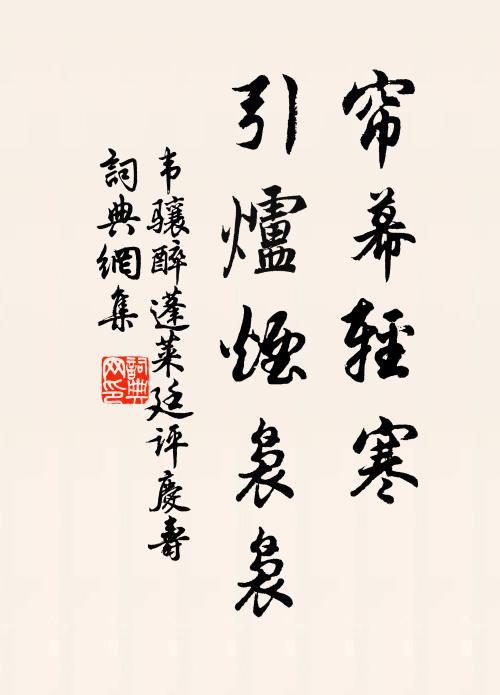 帘幕輕寒
引爐煙裊裊
韦骧醉蓬萊廷评慶壽
詞典網集
詞典网印